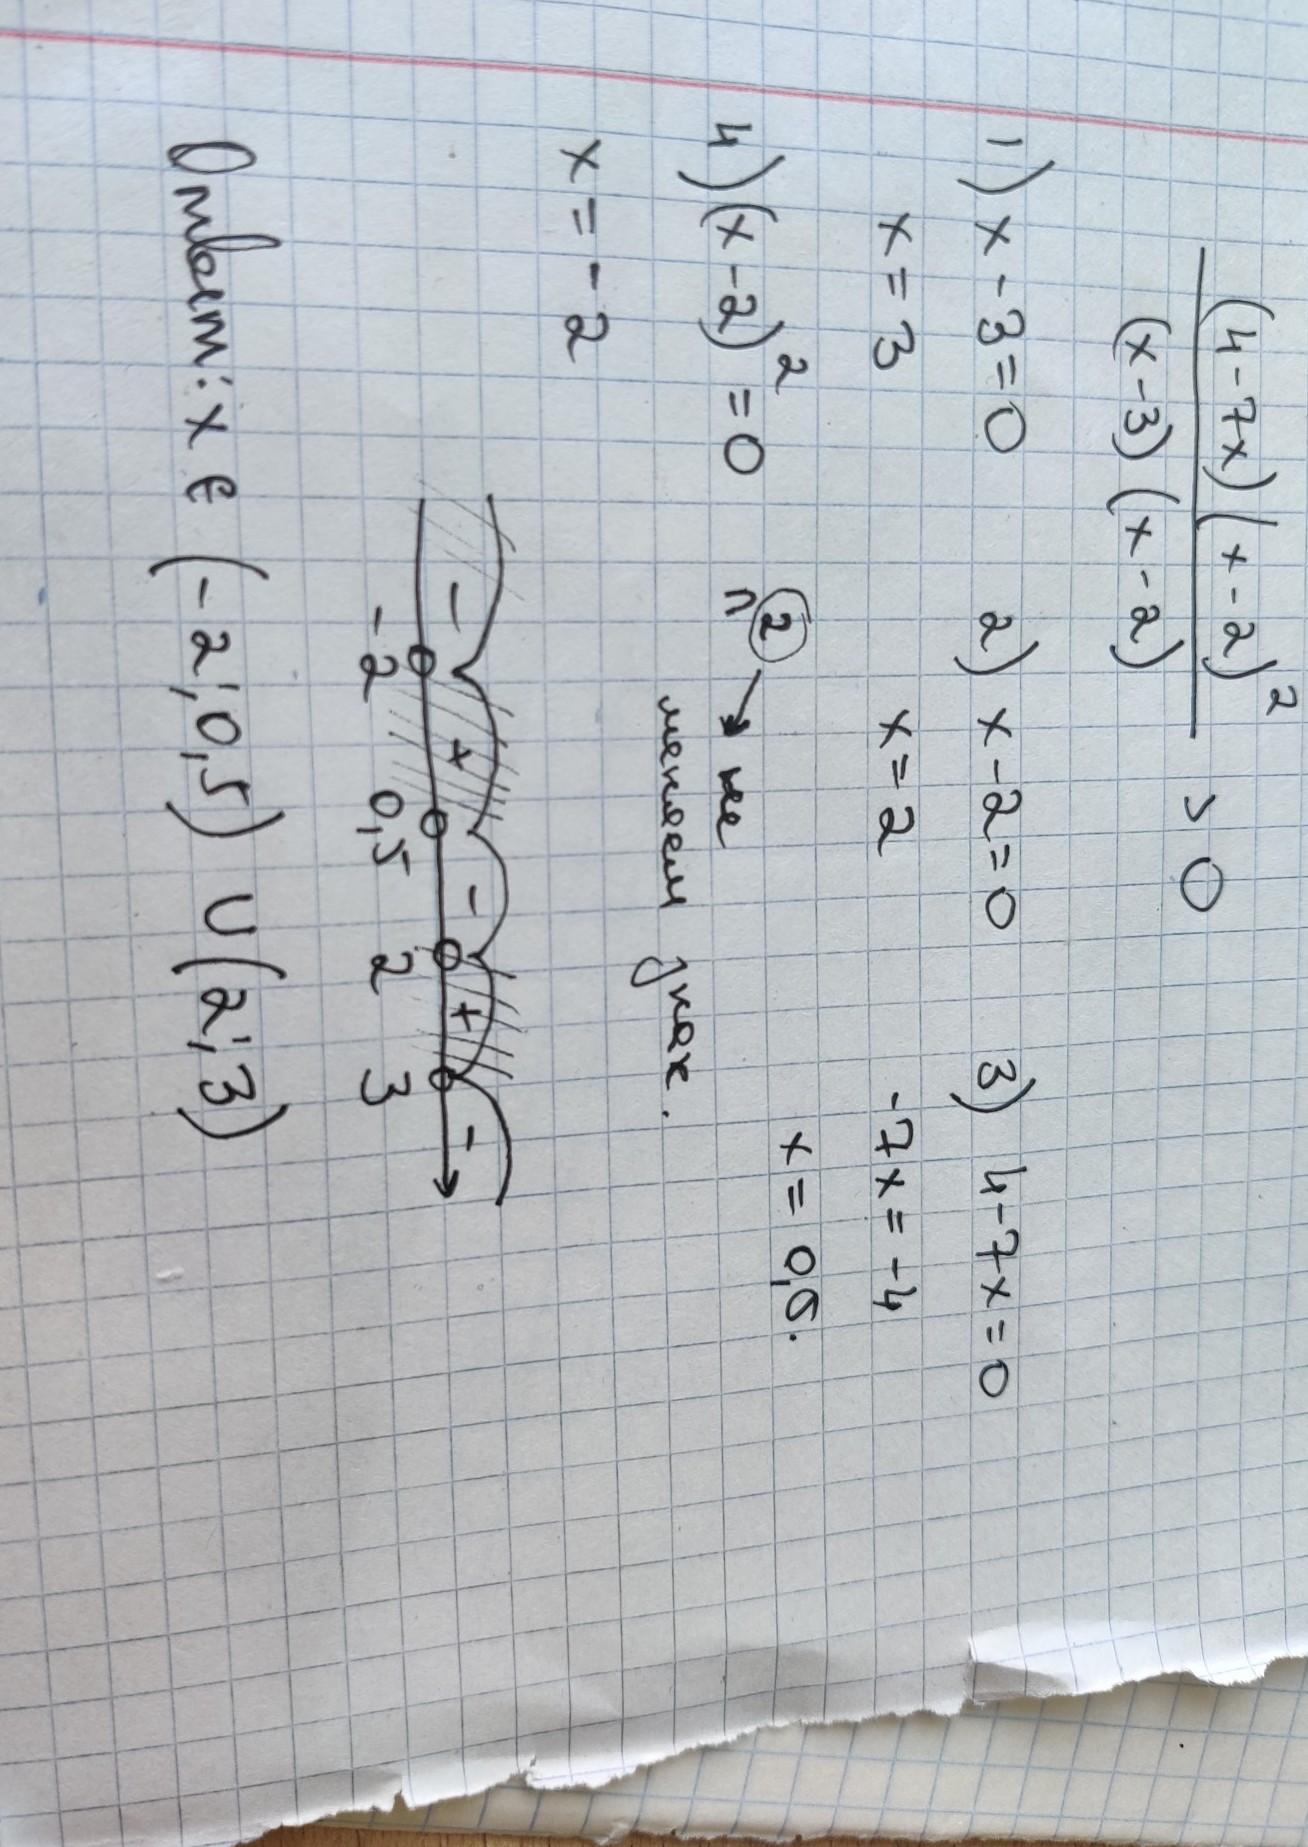 (4-7x)(x-2)²
(x-3)(x-2) > 0
1) x-3=0 2) x-2=0 3) 4-7x=0
x=3 x=2 -7x=-4
x=0,5.
4) (x-2)²=0 n② → не
меняем знак.
x=-2
- + - + -
-2 0,5 2 3
Ответ: x ∈ (-2; 0,5) ∪ (2; 3)